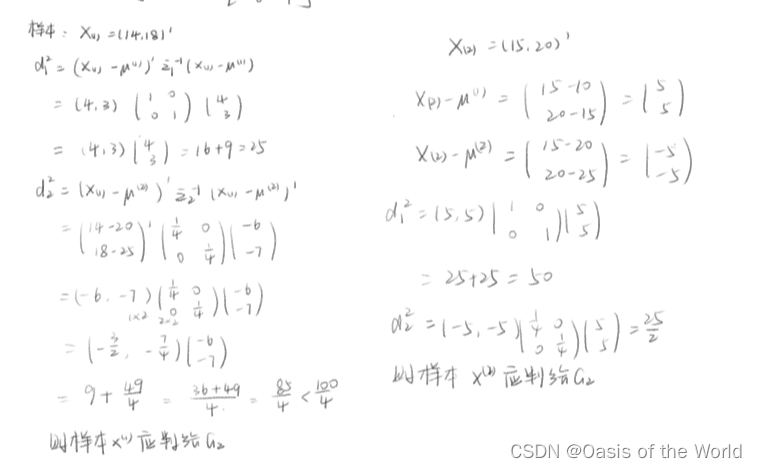 样本: X₍₁₎ = (14,18)'
d₁² = (X₍₁₎ - μ⁽¹⁾)' Σ₁⁻¹ (X₍₁₎ - μ⁽¹⁾)
= (4,3) (1 0 / 0 1) (4 / 3)
= (4,3) (4 / 3) = 16+9 = 25
d₂² = (X₍₁₎ - μ⁽²⁾)' Σ₂⁻¹ (X₍₁₎ - μ⁽²⁾)'
= (14-20 / 18-25)' (1/4 0 / 0 1/4) (-6 / -7)
= (-6, -7) (1/4 0 / 0 1/4) (-6 / -7)
1×2 2×2
= (-3/2, -7/4) (-6 / -7)
= 9 + 49/4 = (36+49)/4 = 85/4 < 100/4
则样本 X⁽¹⁾ 应判给G₂
X₍₂₎ = (15, 20)'
X₍₂₎ - μ⁽¹⁾ = (15-10 / 20-15) = (5 / 5)
X₍₂₎ - μ⁽²⁾ = (15-20 / 20-25) = (-5 / -5)
d₁² = (5,5) (1 0 / 0 1) (5 / 5)
= 25+25 = 50
d₂² = (-5, -5) (1/4 0 / 0 1/4) (5 / 5) = 25/2
则样本 X⁽²⁾ 应判给G₂
CSDN @Oasis of the World